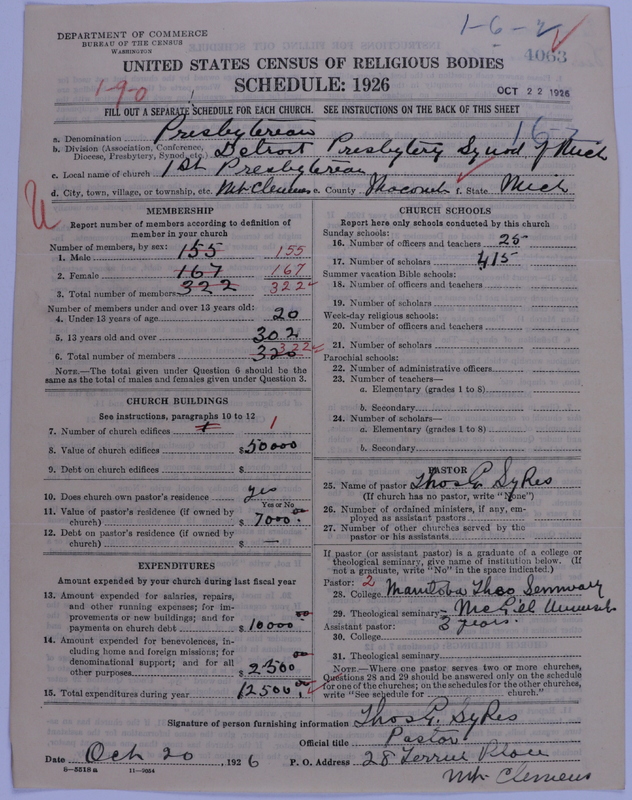 1-6-2
DEPARTMENT OF COMMERCE
BUREAU OF THE CENSUS
WASHINGTON
4063
UNITED STATES CENSUS OF RELIGIOUS BODIES
SCHEDULE: 1926
OCT 22 1926
1-9-0
FILL OUT A SEPARATE SCHEDULE FOR EACH CHURCH. SEE INSTRUCTIONS ON THE BACK OF THIS SHEET
16-2
a. Denomination Presbyterian
b. Division (Association, Conference, Diocese, Presbytery, Synod, etc.) Detroit Presbytery Synod of Mich
c. Local name of church 1st Presbyterian
d. City, town, village, or township, etc. Mt Clemens e. County Macomb f. State Mich
MEMBERSHIP
Report number of members according to definition of
member in your church
Number of members, by sex:
1. Male 155 155
2. Female 167 167
3. Total number of members 322 322
Number of members under and over 13 years old:
4. Under 13 years of age 20
5. 13 years old and over 302
6. Total number of members 320 322
NOTE.—The total given under Question 6 should be the
same as the total of males and females given under Question 3.
CHURCH BUILDINGS
See instructions, paragraphs 10 to 12
7. Number of church edifices 1 1
8. Value of church edifices $50000
9. Debt on church edifices $
10. Does church own pastor's residence yes
Yes or No
11. Value of pastor's residence (if owned by
church) $7000.00
12. Debt on pastor's residence (if owned by
church) $ —
EXPENDITURES
Amount expended by your church during last fiscal year
13. Amount expended for salaries, repairs,
and other running expenses; for im-
provements or new buildings; and for
payments on church debt $10000.00
14. Amount expended for benevolences, in-
cluding home and foreign missions; for
denominational support; and for all
other purposes $2500.00
15. Total expenditures during year 12500.00
CHURCH SCHOOLS
Report here only schools conducted by this church
Sunday schools:
16. Number of officers and teachers 25
17. Number of scholars 415
Summer vacation Bible schools:
18. Number of officers and teachers
19. Number of scholars
Week-day religious schools:
20. Number of officers and teachers
21. Number of scholars
Parochial schools:
22. Number of administrative officers
23. Number of teachers—
a. Elementary (grades 1 to 8)
b. Secondary
24. Number of scholars—
a. Elementary (grades 1 to 8)
b. Secondary
PASTOR
25. Name of pastor Thos G. Sykes
(If church has no pastor, write "None")
26. Number of ordained ministers, if any, em-
ployed as assistant pastors
27. Number of other churches served by the
pastor or his assistants
If pastor (or assistant pastor) is a graduate of a college or
theological seminary, give name of institution below. (If
not a graduate, write "No" in the space indicated.)
Pastor: 2
28. College Manitoba Theo Seminary
29. Theological seminary McGill University
Assistant pastor: 3 years.
30. College
31. Theological seminary
NOTE.—Where one pastor serves two or more churches,
Questions 28 and 29 should be answered only on the schedule
for one of the churches; on the schedules for the other churches,
write "See schedule for church."
Signature of person furnishing information Thos G. Sykes
Official title Pastor
Date Oct 20, 1926 P. O. Address 28 Terrill Place
8-5518a 11-9054
Mt Clemens